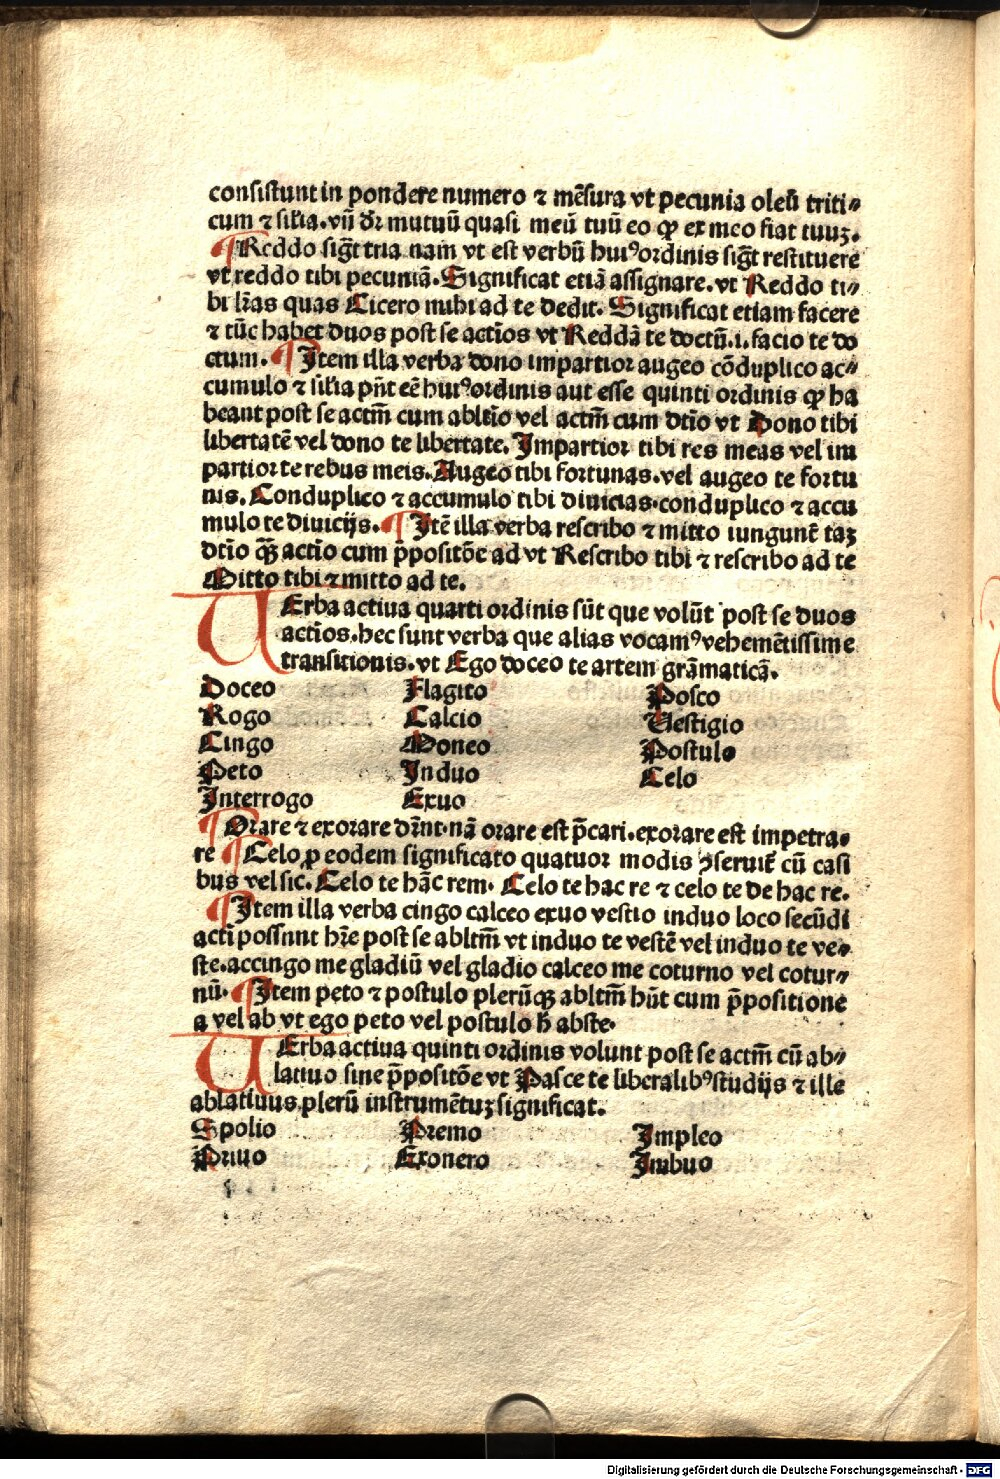 consistunt in pondere numero ⁊ mēsura vt pecunia oleū triti⸗
cum ⁊ silia. vñ dr̄ mutuū quasi meū tuū eo ꝙ ex meo fiat tuuꝫ.
¶ Reddo sigt̄ tria nam vt est verbū huiꝰ ordinis sigt̄ restituere
vt reddo tibi pecuniā. Significat etiā assignare. vt Reddo ti⸗
bi lr̄as quas Cicero mihi ad te dedit. Significat etiam facere
⁊ tūc habet duos post se actīos vt Reddā te doctū .i. facio te do
ctum. ¶ Item illa verba dono impartior augeo cōduplico ac⸗
cumulo ⁊ silia pn̄t eē huiꝰ ordinis aut esse quinti ordinis ꝙ ha
beant post se actm̄ cum abltīo vel actm̄ cum dtīo vt Dono tibi
libertatē vel dono te libertate. Impartior tibi res meas vel im
partior te rebus meis. Augeo tibi fortunas. vel augeo te fortu
nis. Conduplico ⁊ accumulo tibi diuicias. conduplico ⁊ accu
mulo te diuicijs. ¶ Itē illa verba rescribo ⁊ mitto iungunt̄ taꝫ
dtīo ꝙ̄ꝫ actīo cum p̄positōe ad vt Rescribo tibi ⁊ rescribo ad te
Mitto tibi ⁊ mitto ad te.
UErba actiua quarti ordinis sūt que volūt post se duos
actīos. hec sunt verba que alias vocamꝰ vehemētissime
transitionis. vt Ego doceo te artem grāmaticā.
Doceo Flagito Posco
Rogo Calcio Uestigio
Cingo Moneo Postulo
Peto Induo Celo
Interrogo Exuo
¶ Orare ⁊ exorare dr̄nt. nā orare est p̄cari. exorare est impetra⸗
re ¶ Celo ꝓ eodem significato quatuor modis ꝯseruit̄ cū casi
bus vel sic. Celo te hāc rem. Celo te hac re ⁊ celo te de hac re.
¶ Item illa verba cingo calceo exuo vestio induo loco secūdi
acti possunt hr̄e post se abltm̄ vt induo te vestē vel induo te ve⸗
ste. accingo me gladiū vel gladio calceo me coturno vel cotur⸗
nū. ¶ Item peto ⁊ postulo plerūqꝫ abltm̄ hn̄t cum p̄positione
a vel ab vt ego peto vel postulo h̄ abste.
UErba actiua quinti ordinis volunt post se actm̄ cū ab⸗
latiuo sine p̄positōe vt Pasce te liberalibꝰ studijs ⁊ ille
ablatiuus plerū instrumētuꝫ significat.
Spolio Premo Impleo
Priuo Exonero Imbuo
Digitalisierung gefördert durch die Deutsche Forschungsgemeinschaft - DFG